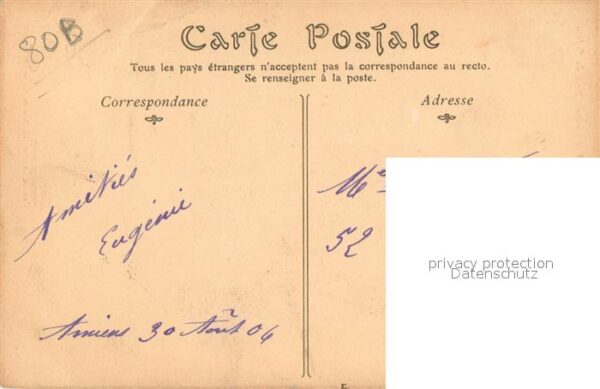 80B
Carte Postale
Tous les pays étrangers n'acceptent pas la correspondance au recto.
Se renseigner à la poste.
Correspondance
Adresse
Amitiés
Eugénie
Amiens 30 Août 04
Me
52
privacy protection
Datenschutz